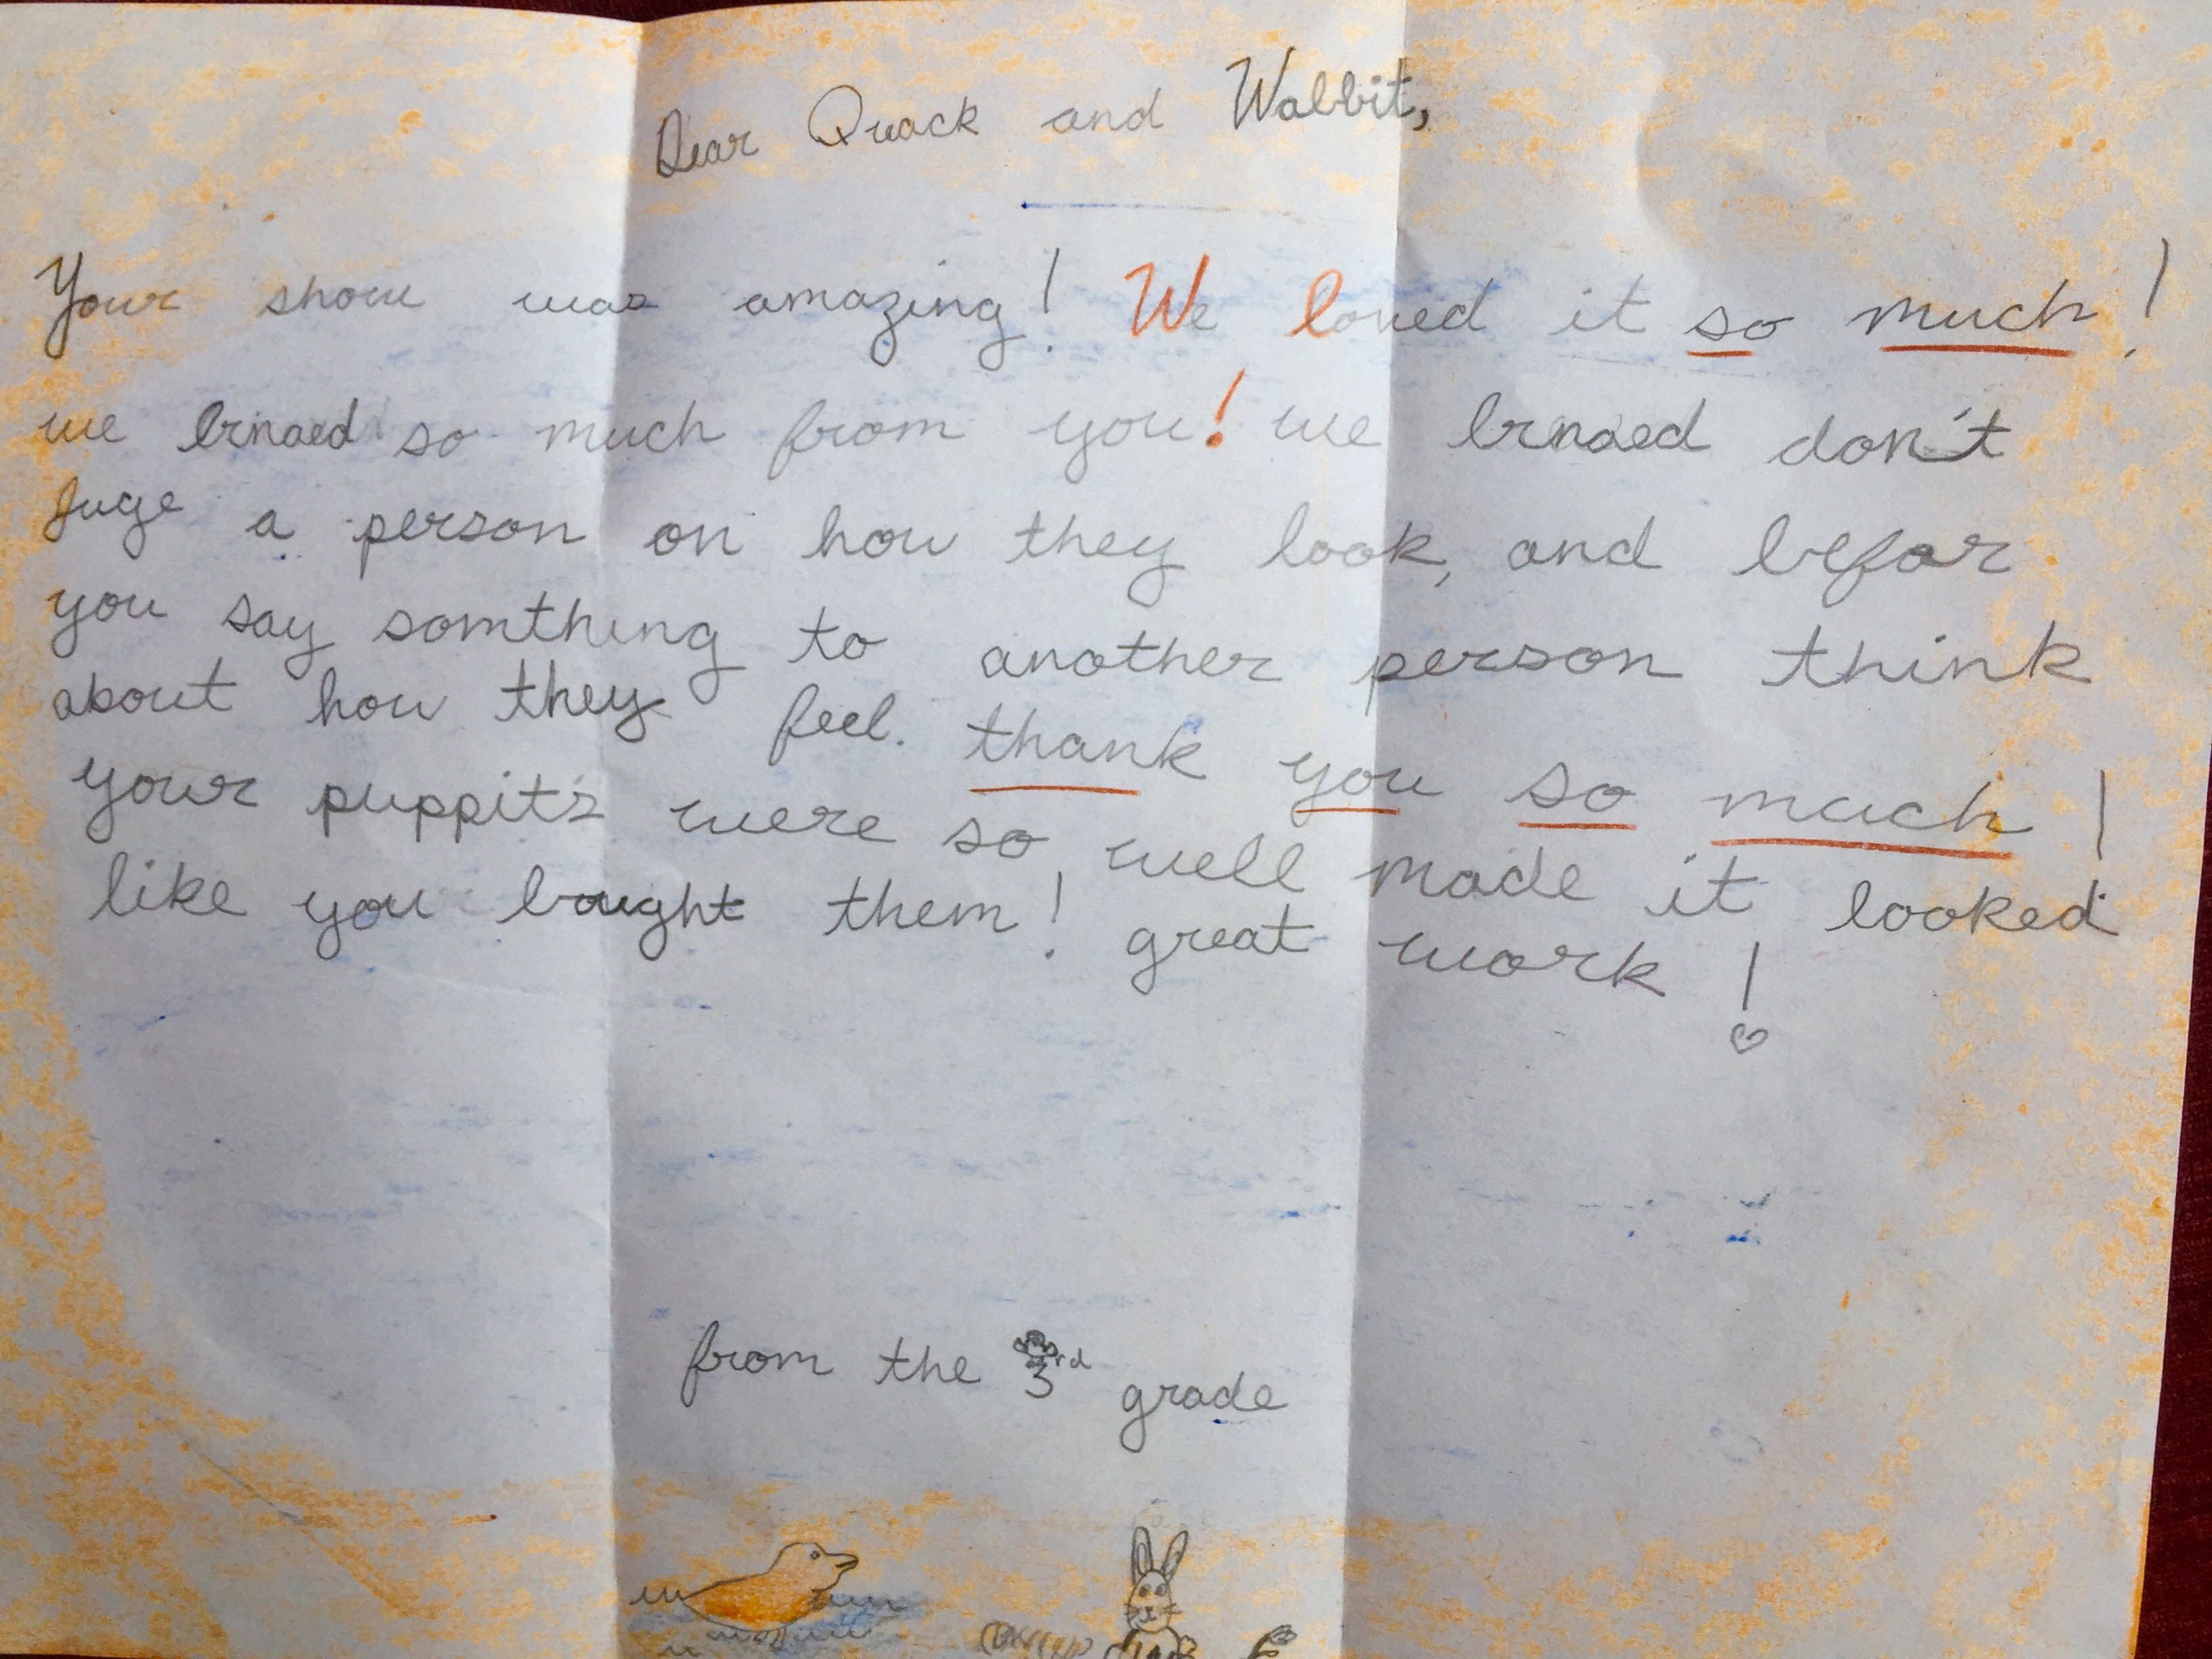 Dear Quack and Wabbit,
Your show was amazing! We loved it so much!
we lrnaed so much from you! we lrnaed don't
juge a person on how they look, and befor
you say somthing to another person think
about how they feel. thank you so much!
your puppit's were so well made it looked
like you bought them! great work!
from the 3rd grade